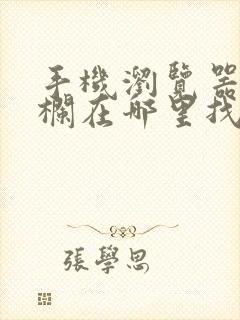 手機瀏覽器
欄在哪里找
張學思